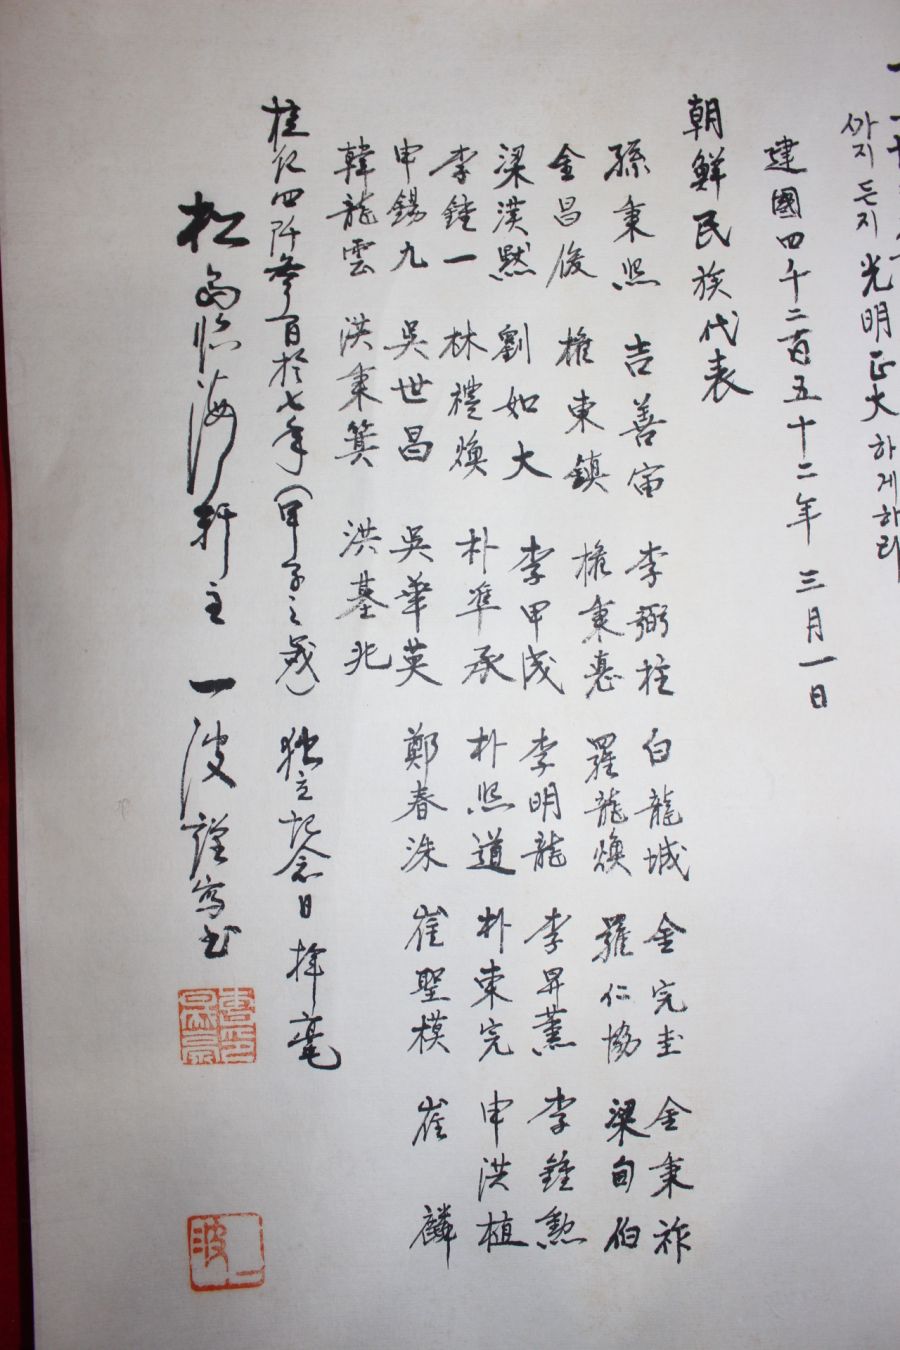 까지 든지 光明正大 하게하라
建國四千二百五十二年 三月一日
朝鮮民族代表
孫秉熙 吉善宙 李弼柱 白龍城 金完圭 金秉祚
金昌俊 權東鎮 權秉悳 羅龍煥 羅仁協 梁甸伯
梁漢默 劉如大 李甲成 李明龍 李昇薰 李鍾勳
李鍾一 林禮煥 朴準承 朴熙道 朴東完 申洪植
申錫九 吳世昌 吳華英 鄭春洙 崔聖模 崔 麟
韓龍雲 洪秉箕 洪基兆
檀紀四阡參百拾七年(甲子之歲) 独立記念日 揮毫
松島臨海軒主 一波 謹寫書
一波